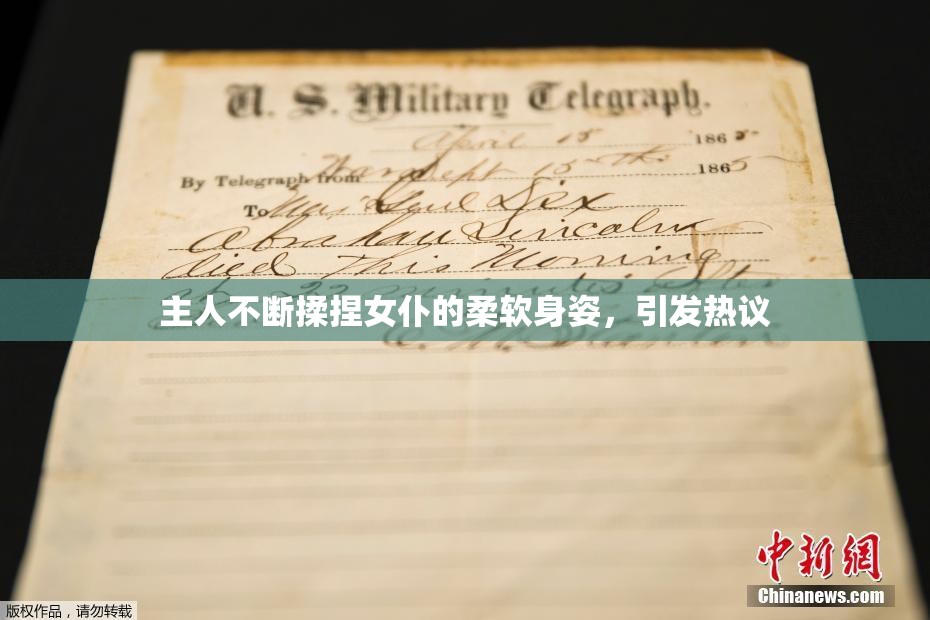 U. S. Military Telegraph.
April 15 1865
By Telegraph from War Dept 15th 1865
To Maj Genl Dix
Abraham Lincoln
died this Morning
at 22 minutes after
主人不断揉捏女仆的柔软身姿，引发热议
E. M. Stanton
中新网
版权作品，请勿转载
Chinanews.com